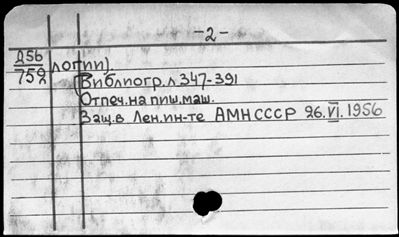 -2-
Д56
752 логии).
(Библиогр. л. 347-391
Отпеч. на пиш. маш.
Защ. в Лен. ин-те АМН СССР 26.VI.1956